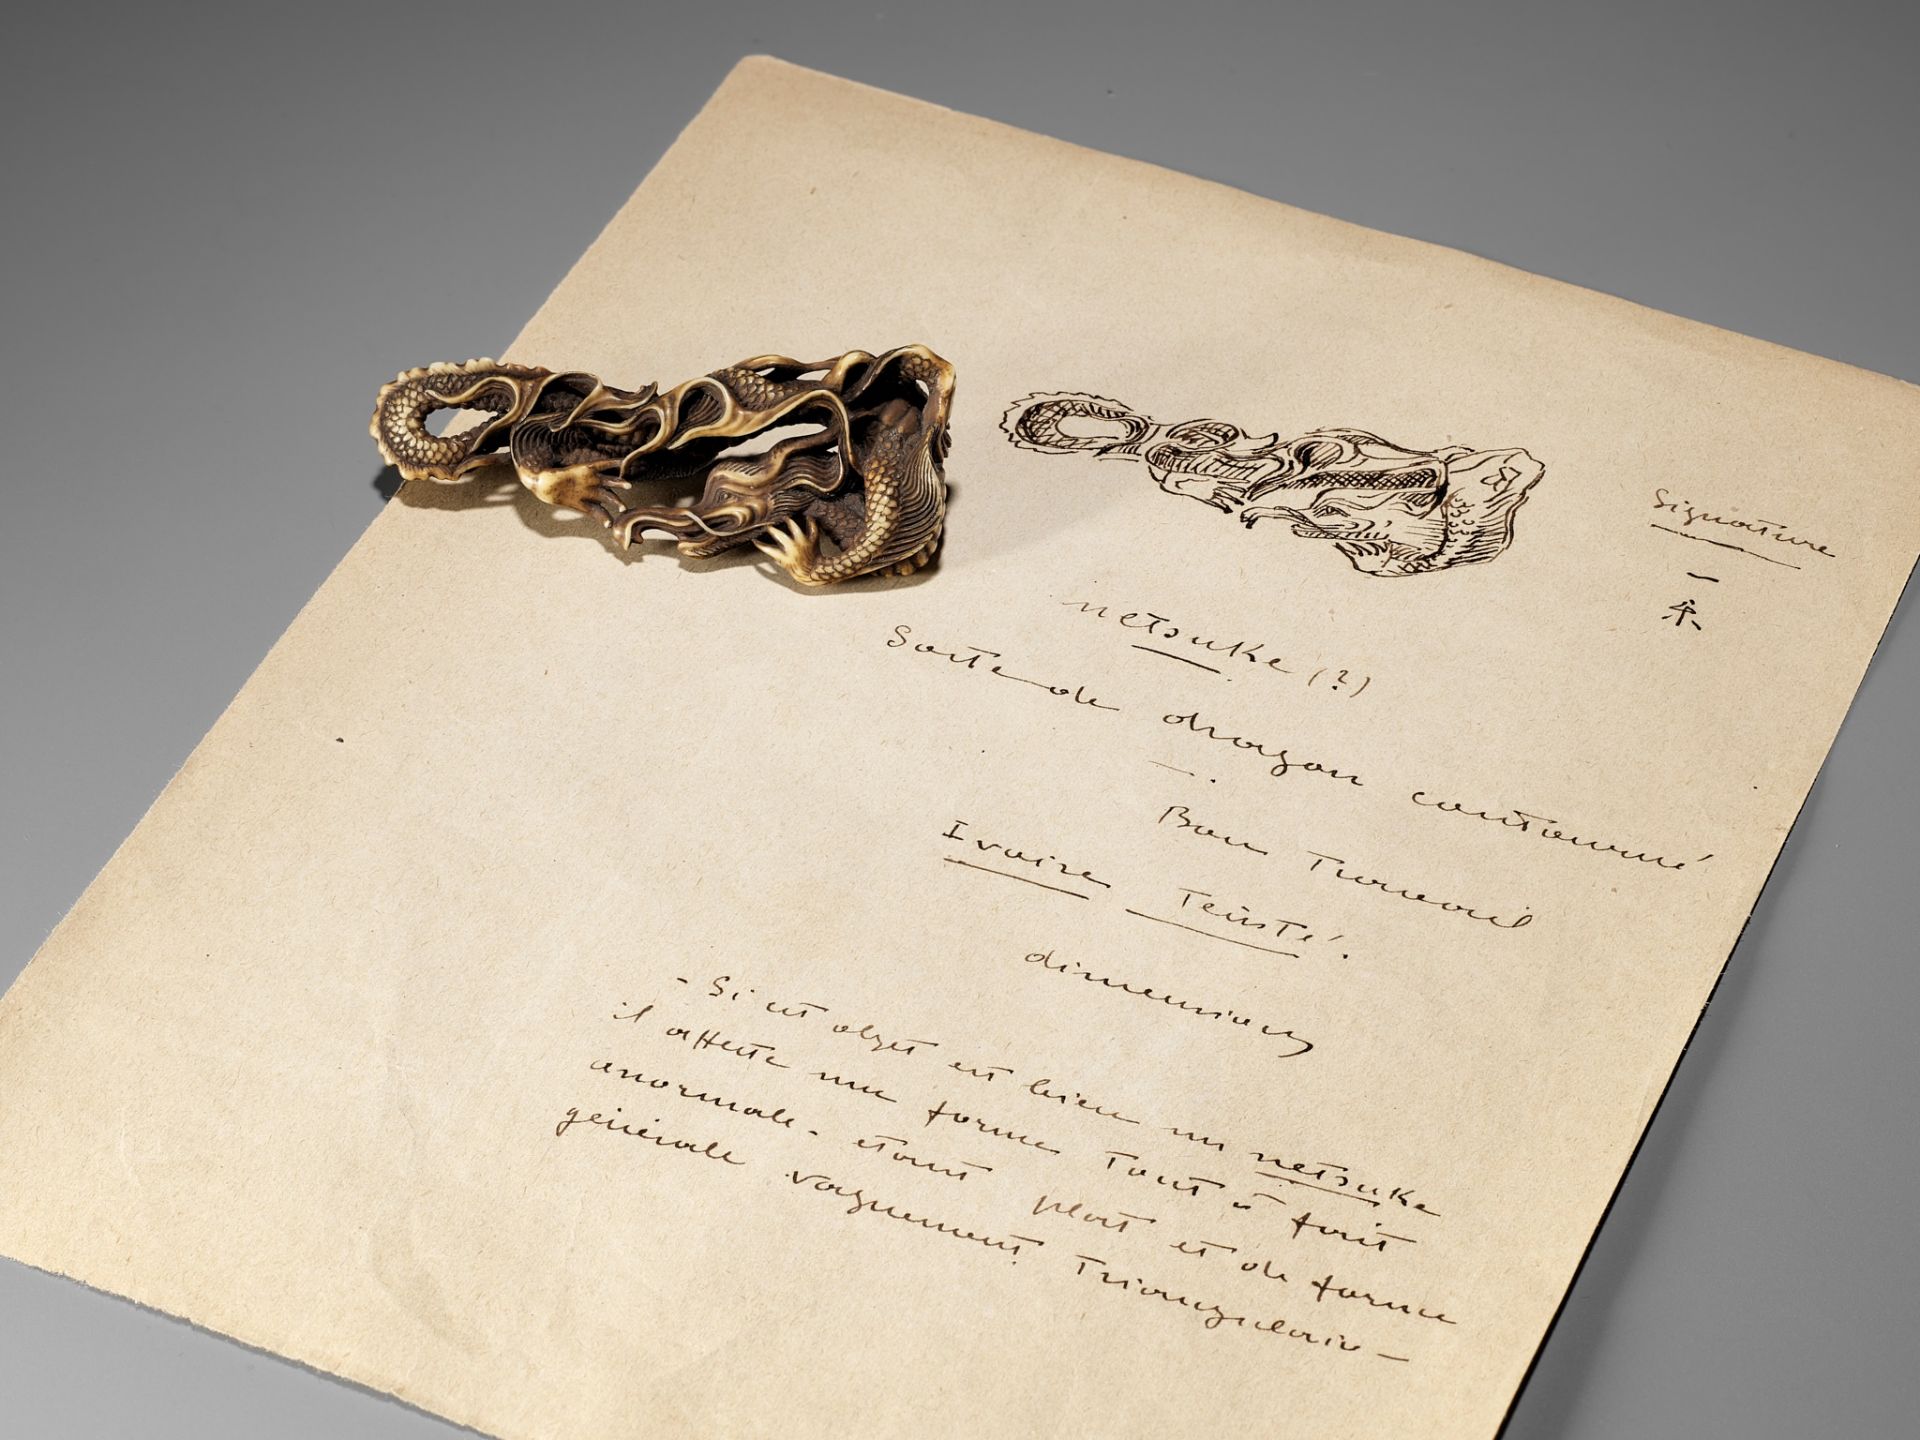 Signature
一
netsuke (?)
Sorte de dragon contourné
Bon travail
Ivoire teinté.
dimensions
- Si cet objet est bien un netsuke
il affecte une forme tout à fait
anormale - étant plat et de forme
générale vaguement triangulaire -